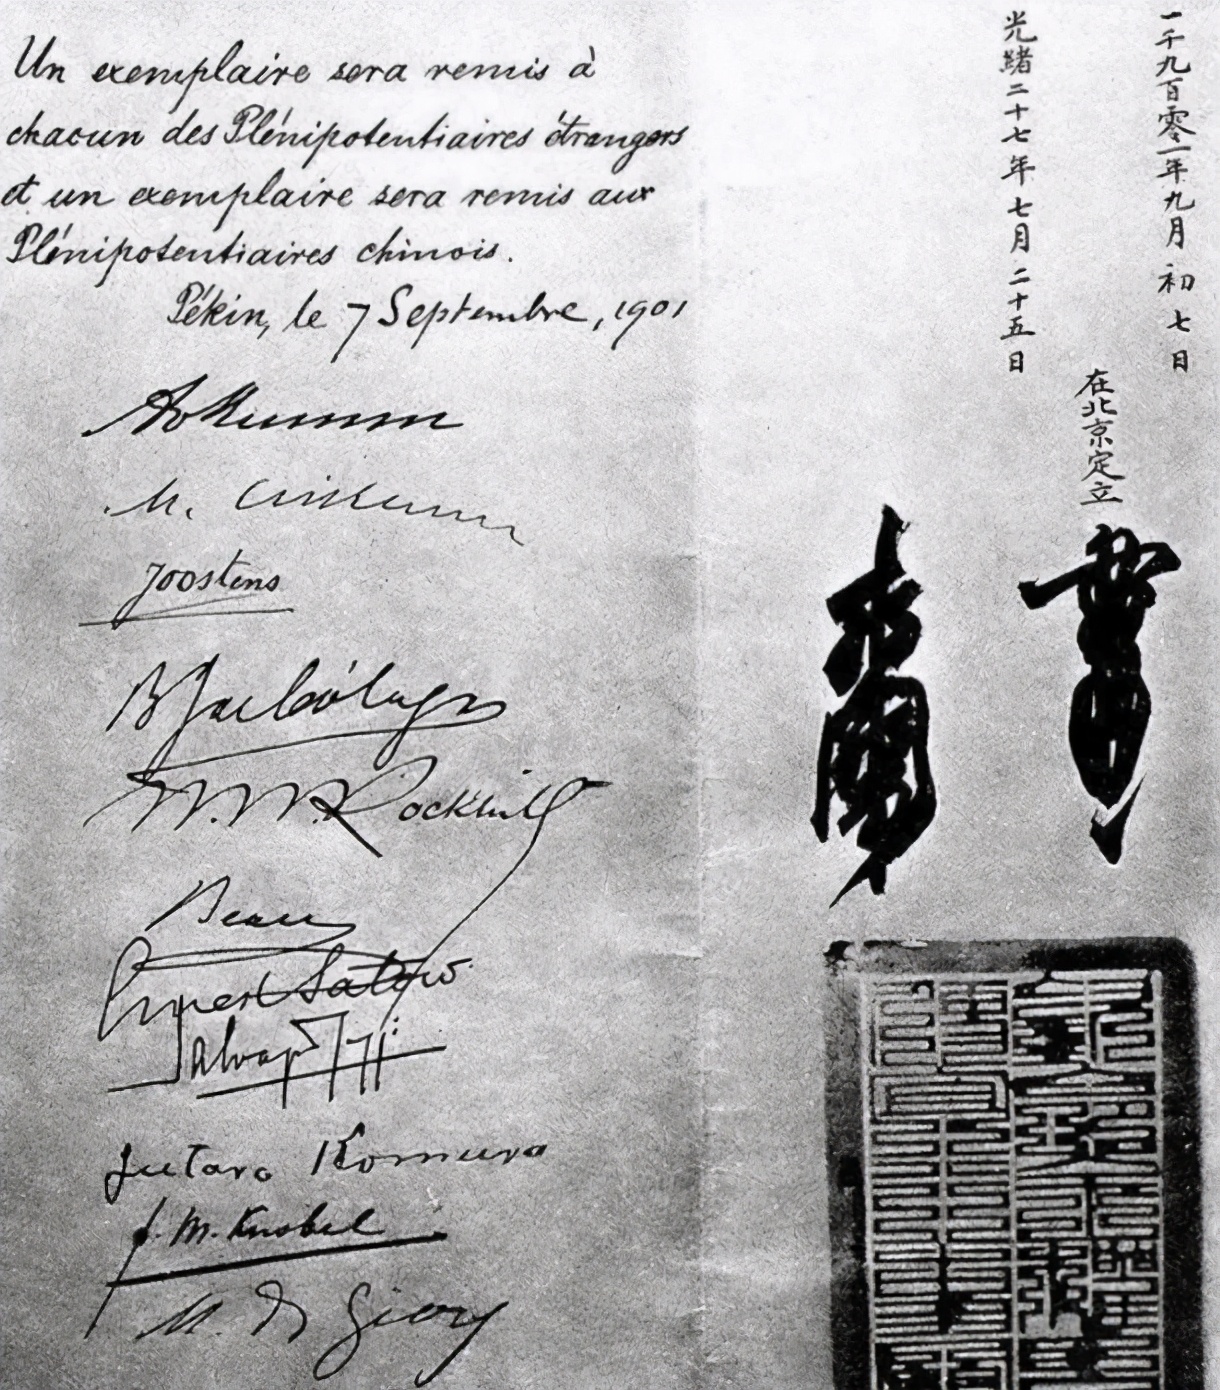 Un exemplaire sera remis à
chacun des Plénipotentiaires étrangers
et un exemplaire sera remis aux
Plénipotentiaires chinois.
Pékin, le 7 Septembre, 1901
A v Mumm
M. Czikann
Joostens
B J de Cólogan
W. W. Rockhill
Beau
Ernest Satow
Salvago
Jutaro Komura
F. M. Knobel
M de Giers
一千九百零一年九月初七日
光緒二十七年七月二十五日
在北京定立